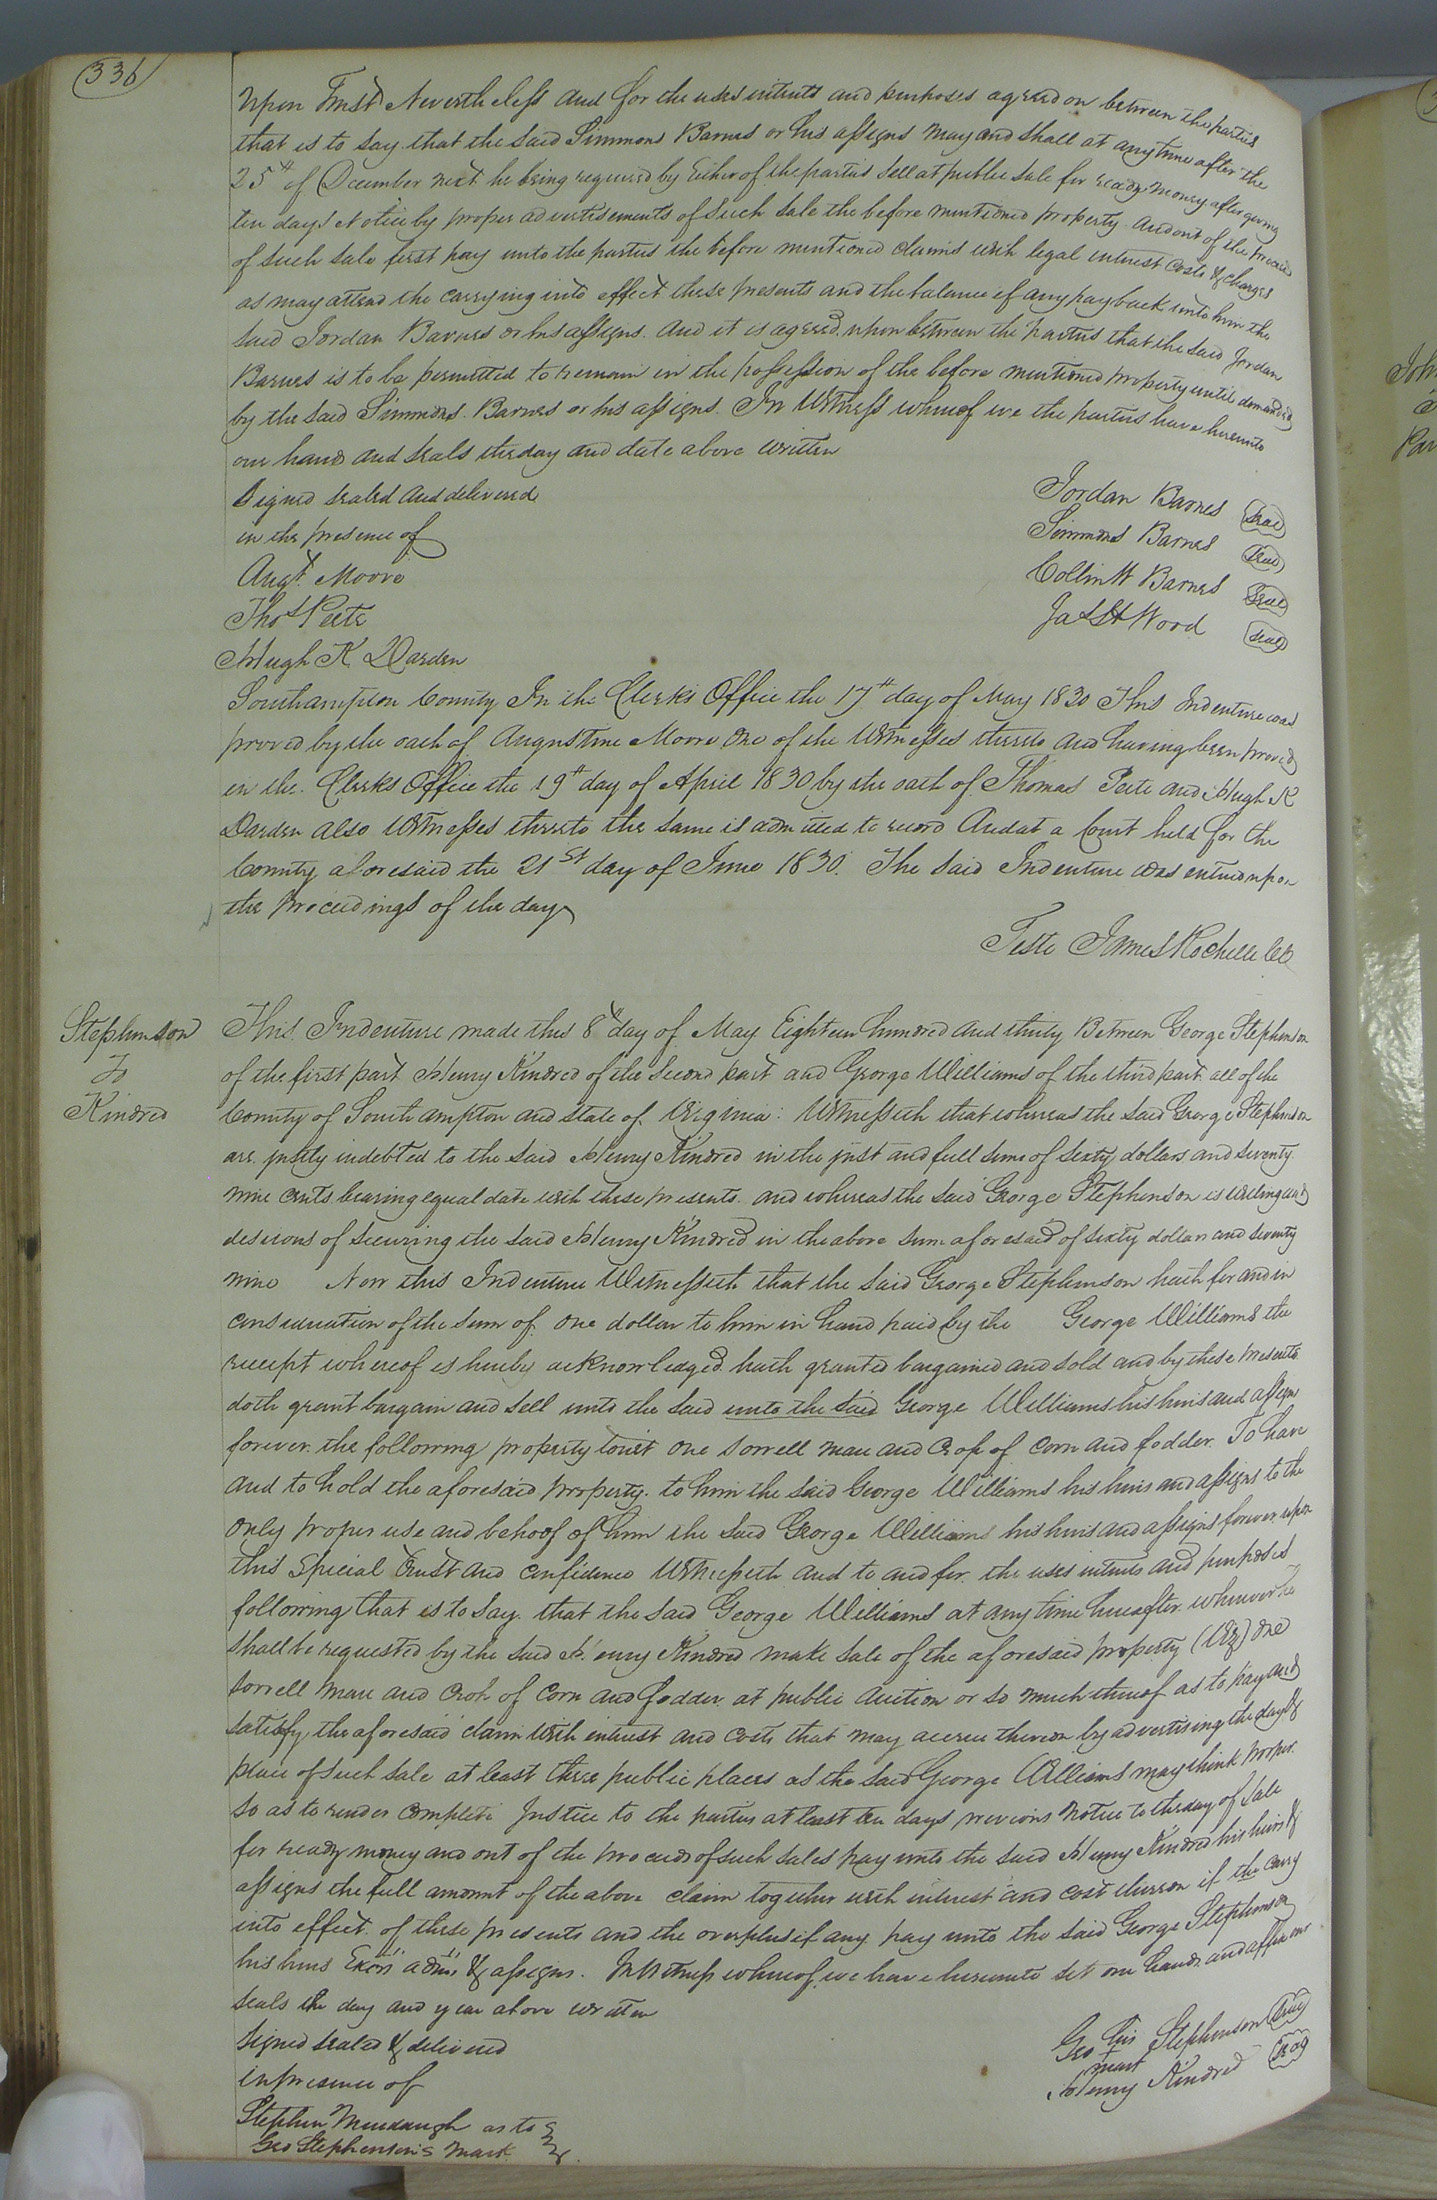 336
Upon Trust Nevertheless and for the uses intents and purposes agreed on between the parties
that is to say that the said Simmons Barnes or his assigns may and shall at any time after the
25th of December next he being required by Either of the parties sell at public sale for ready money after giving
ten days Notice by proper advertisements of such sale the before mentioned property and out of the proceeds
of such sale first pay unto the parties the before mentioned claims with legal interest costs & charges
as may attend the carrying into effect these presents and the balance if any pay back unto him the
said Jordan Barnes or his assigns. And it is agreed upon between the parties that the said Jordan
Barnes is to be permitted to remain in the possession of the before mentioned property until demanded
by the said Simmons Barnes or his assigns. In Witness whereof we the parties have hereunto
our hands and seals the day and date above written
Signed sealed and delivered
in the presence of
Augt. Moore
Thos Peete
Hugh K Darden
Jordan Barnes Seal
Simmons Barnes Seal
Collin W Barnes Seal
Jas Wood Seal
Southampton County In the Clerks Office the 17th day of May 1830 This Indenture was
proved by the oath of Augustine Moore One of the Witnesses thereto and having been proved
in the Clerks Office the 19th day of April 1830 by the oath of Thomas Peete and Hugh K
Darden also Witnesses thereto the same is admitted to record And at a Court held for the
County aforesaid the 21st day of June 1830. The said Indenture was entered upon
the proceedings of the day
Teste James Rochelle CC
Stephenson
To
Kindred
This Indenture made this 8th day of May Eighteen hundred and thirty Between George Stephenson
of the first part Henry Kindred of the second part and George Williams of the third part all of the
County of Southampton and state of Virginia: Witnesseth that whereas the said George Stephenson
are justly indebted to the said Henry Kindred in the just and full sume of sixty dollars and seventy
nine cents bearing equal date with these presents. and whereas the said George Stephenson is willing and
desirous of securing the said Henry Kindred in the above sum aforesaid of sixty dollars and seventy
nine Now this Indenture Witnesseth that the said George Stephenson hath for and in
consideration of the sum of one dollar to him in hand paid by the George Williams the
receipt whereof is hereby acknowledged hath granted bargained and sold and by these presents
doth grant bargain and sell unto the said unto the said George Williams his heirs and assigns
forever the following property towit one sorrell mare and Crop of corn and fodder. To have
and to hold the aforesaid property. to him the said George Williams his heirs and assigns to the
only proper use and behoof of him the said George Williams his heirs and assigns forever upon
this special trust and confidence Witnesseth and to and for the uses intents and purposes
following that is to say. that the said George Williams at any time hereafter whenever he
shall be requested by the said Henry Kindred make sale of the aforesaid property (Viz) one
sorrell mare and Crop of corn and fodder at public Auction or so much thereof as to pay and
satisfy the aforesaid claim with interest and costs that may accrue thereon by advertising the day &
place of such sale at least three public places as the said George Williams may think proper
so as to render complete Justice to the parties at least ten days previous notice to the day of sale
for ready money and out of the proceeds of such sales pay unto the said Henry Kindred his heirs &
assigns the full amount of the above claim together with interest and cost thereon if the carry
into effect of these presents and the overplus if any pay unto the said George Stephenson
his heirs Exors admrs & assigns. In Witness whereof we have hereunto set our hands and affix our
seals the day and year above written
Signed sealed & delivered
in presence of
Stephen Murdaugh as to
Geo Stephenson's Mark
Geo his Stephenson Seal
mark
Henry Kindred Seal